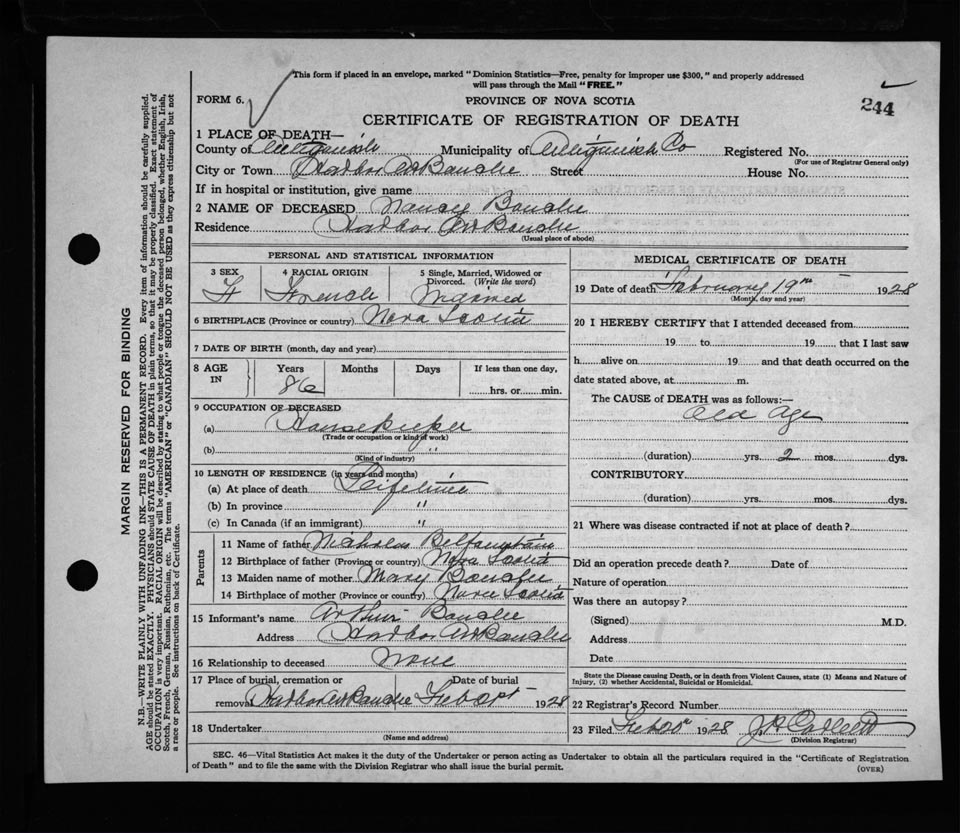 This form if placed in an envelope, marked "Dominion Statistics—Free, penalty for improper use $300," and properly addressed
will pass through the Mail "FREE."
FORM 6.
PROVINCE OF NOVA SCOTIA
244
CERTIFICATE OF REGISTRATION OF DEATH
1 PLACE OF DEATH—
County of Antigonish Municipality of Antigonish Co Registered No.
(For use of Registrar General only)
City or Town Harbor Au Bouche Street House No.
If in hospital or institution, give name
2 NAME OF DECEASED Nancy Bouche
Residence Harbor Au Bouche
(Usual place of abode)
PERSONAL AND STATISTICAL INFORMATION
3 SEX 4 RACIAL ORIGIN 5 Single, Married, Widowed or
Divorced. (Write the word)
F French Married
6 BIRTHPLACE (Province or country) Nova Scotia
7 DATE OF BIRTH (month, day and year)
8 AGE IN Years Months Days If less than one day,
86 hrs. or min.
9 OCCUPATION OF DECEASED
(a) Housekeeper
(Trade or occupation or kind of work)
(b) "
(Kind of industry)
10 LENGTH OF RESIDENCE (in years and months)
(a) At place of death Lifetime
(b) In province "
(c) In Canada (if an immigrant) "
Parents
11 Name of father Nicholas
12 Birthplace of father (Province or country) Nova Scotia
13 Maiden name of mother Mary Bouche
14 Birthplace of mother (Province or country) Nova Scotia
15 Informant's name Arthur Bouche
Address Harbor Au Bouche
16 Relationship to deceased None
17 Place of burial, cremation or Date of burial
removal Harbor Au Bouche Feb 1928
18 Undertaker
(Name and address)
MEDICAL CERTIFICATE OF DEATH
19 Date of death February 19th 1928
(Month, day and year)
20 I HEREBY CERTIFY that I attended deceased from
19 to 19 that I last saw
h alive on 19 and that death occurred on the
date stated above, at m.
The CAUSE of DEATH was as follows:—
Old Age
(duration) yrs. 2 mos. dys.
CONTRIBUTORY
(duration) yrs. mos. dys.
21 Where was disease contracted if not at place of death?
Did an operation precede death? Date of
Nature of operation
Was there an autopsy?
(Signed) M.D.
Address
Date
State the Disease causing Death, or in death from Violent Causes, state (1) Means and Nature of
Injury, (2) whether Accidental, Suicidal or Homicidal.
22 Registrar's Record Number
23 Filed Feb 1928
(Division Registrar)
SEC. 46—Vital Statistics Act makes it the duty of the Undertaker or person acting as Undertaker to obtain all the particulars required in the "Certificate of Registration
of Death" and to file the same with the Division Registrar who shall issue the burial permit.
(OVER)
MARGIN RESERVED FOR BINDING
N.B.—WRITE PLAINLY WITH UNFADING INK—THIS IS A PERMANENT RECORD. Every item of information should be carefully supplied.
AGE should be stated EXACTLY. PHYSICIANS should STATE CAUSE OF DEATH in plain terms, so that it may be properly classified. Exact statement of
OCCUPATION is very important. RACIAL ORIGIN will be described by stating to what people or tongue the deceased person belonged, whether English, Irish,
Scotch, French, German, Russian, Ruthenian, etc. The terms "AMERICAN" or "CANADIAN" SHOULD NOT BE USED as they express citizenship but not
a race or people. See instructions on back of Certificate.